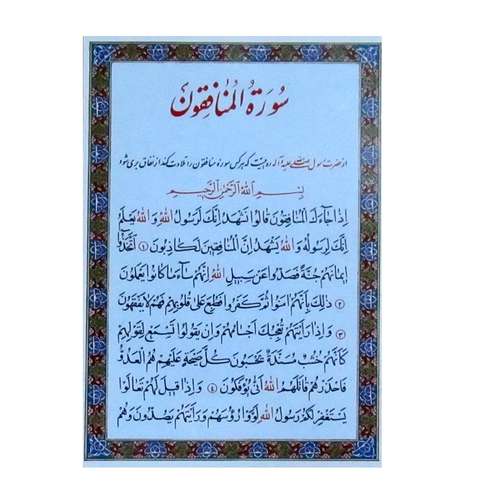 سُورَةُ المُنافِقونَ
از حضرت رسول صلی الله علیه و آله روایتست که هر کس سوره منافقون را تلاوت کند از نفاق بری شود
بِسْمِ اللّٰهِ الرَّحْمٰنِ الرَّحيمِ
اِذا جاءَكَ الْمُنافِقُونَ قالُوا نَشْهَدُ اِنَّكَ لَرَسُولُ اللّٰهِ وَ اللّٰهُ يَعْلَمُ
اِنَّكَ لَرَسُولُهُ وَ اللّٰهُ يَشْهَدُ اِنَّ الْمُنافِقينَ لَكاذِبُونَ ﴿١﴾ اِتَّخَذُوا
اَيْمانَهُمْ جُنَّةً فَصَدُّوا عَنْ سَبيلِ اللّٰهِ اِنَّهُمْ سٰاءَ ما كانُوا يَعْمَلُونَ
﴿٢﴾ ذٰلِكَ بِاَنَّهُمْ امَنُوا ثُمَّ كَفَرُوا فَطُبِعَ عَلىٰ قُلُوبِهِمْ فَهُمْ لا يَفْقَهُونَ
﴿٣﴾ وَ اِذا رَاَيْتَهُمْ تُعْجِبُكَ اَجْسامُهُمْ وَ اِنْ يَقُولُوا تَسْمَعْ لِقَوْلِهِمْ
كَاَنَّهُمْ خُشُبٌ مُسَنَّدَةٌ يَحْسَبُونَ كُلَّ صَيْحَةٍ عَلَيْهِمْ هُمُ الْعَدُوُّ
فَاحْذَرْهُمْ قاتَلَهُمُ اللّٰهُ اَنّىٰ يُؤْفَكُونَ ﴿٤﴾ وَ اِذا قيلَ لَهُمْ تَعالَوْا
يَسْتَغْفِرْ لَكُمْ رَسُولُ اللّٰهِ لَوَّوْا رُؤُسَهُمْ وَ رَاَيْتَهُمْ يَصُدُّونَ وَ هُمْ